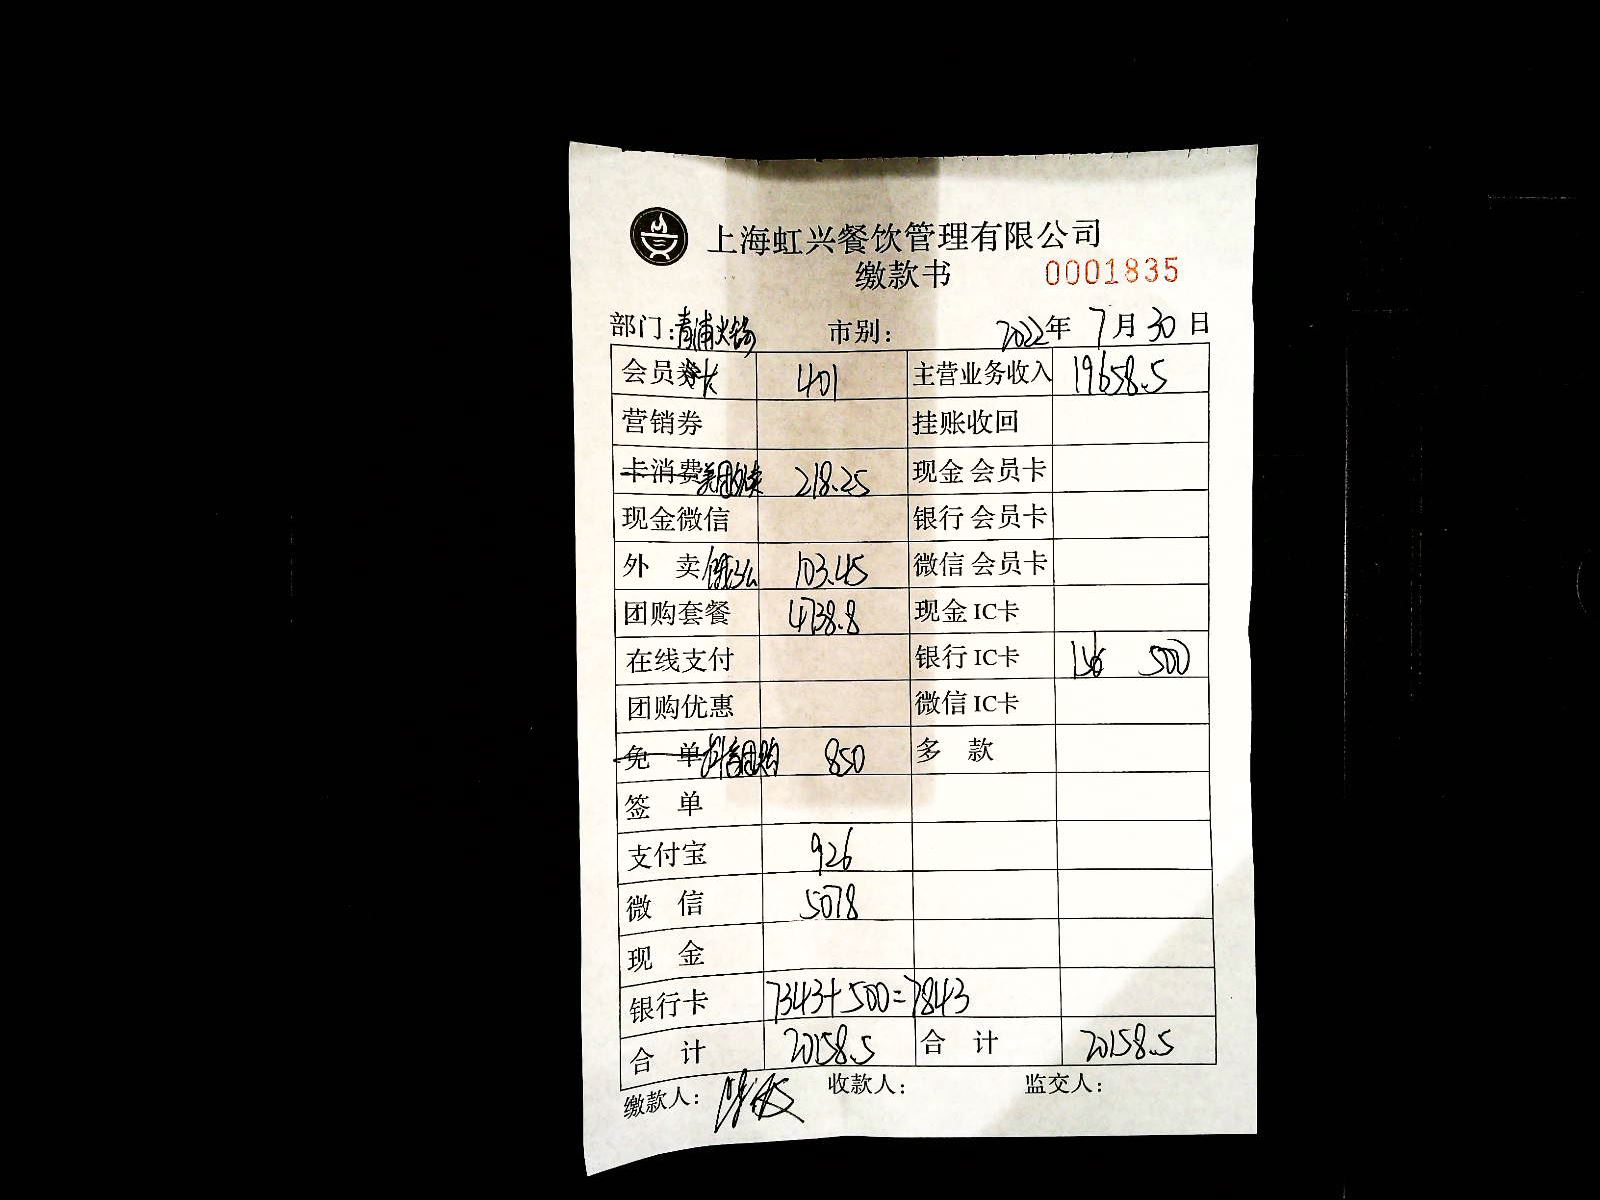 上海虹兴餐饮管理有限公司
缴款书 0001835
部门:青浦火锅 市别: 2022年 7月30日
会员卡 401 主营业务收入 19658.5
营销券 挂账收回
卡消费美团外卖 218.25 现金 会员卡
现金微信 银行 会员卡
外 卖 饿了么 103.45 微信 会员卡
团购套餐 4738.8 现金 IC卡
在线支付 银行 IC卡 500
团购优惠 微信 IC卡
免 单 抖音团购 850 多 款
签 单
支付宝 926
微 信 5078
现 金
银行卡 7343+500=7843
合 计 20158.5 合 计 20158.5
缴款人: 收款人: 监交人: